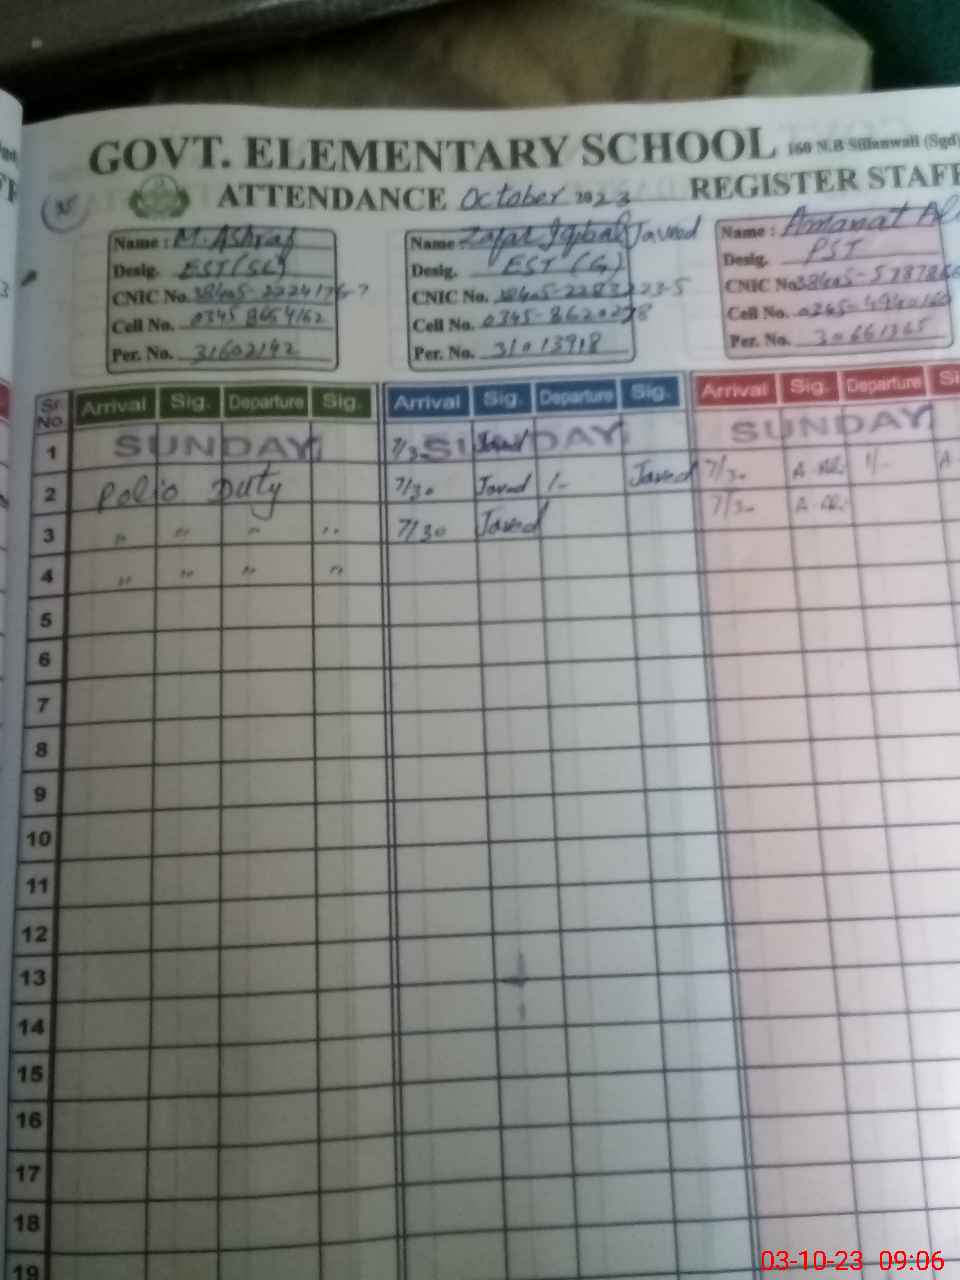 GOVT. ELEMENTARY SCHOOL 160 N.B Sillanwali (Sgd)
ATTENDANCE October 2023 REGISTER STAFF
Name : M. Ashraf
Desig. EST (SC)
CNIC No.
Cell No. 0345 8654162
Per. No. 31602142
Name Zafar Iqbal Javed
Desig. EST (G)
CNIC No.
Cell No. 0345-8620278
Per. No. 31013918
Name : Amanat Al
Desig. PST
CNIC No.
Cell No.
Per. No. 30661365
Sr. No. Arrival Sig. Departure Sig. Arrival Sig. Departure Sig. Arrival Sig. Departure Si
1 SUNDAY 7/3 SUNDAY SUNDAY
2 Polio Duty 7/30 Javed 1/- Javed 7/30 A. Ali 1/- A
3 " " " " 7/30 Javed 7/30 A. Ali
4 " " " "
5
6
7
8
9
10
11
12
13
14
15
16
17
18
19
03-10-23 09:06